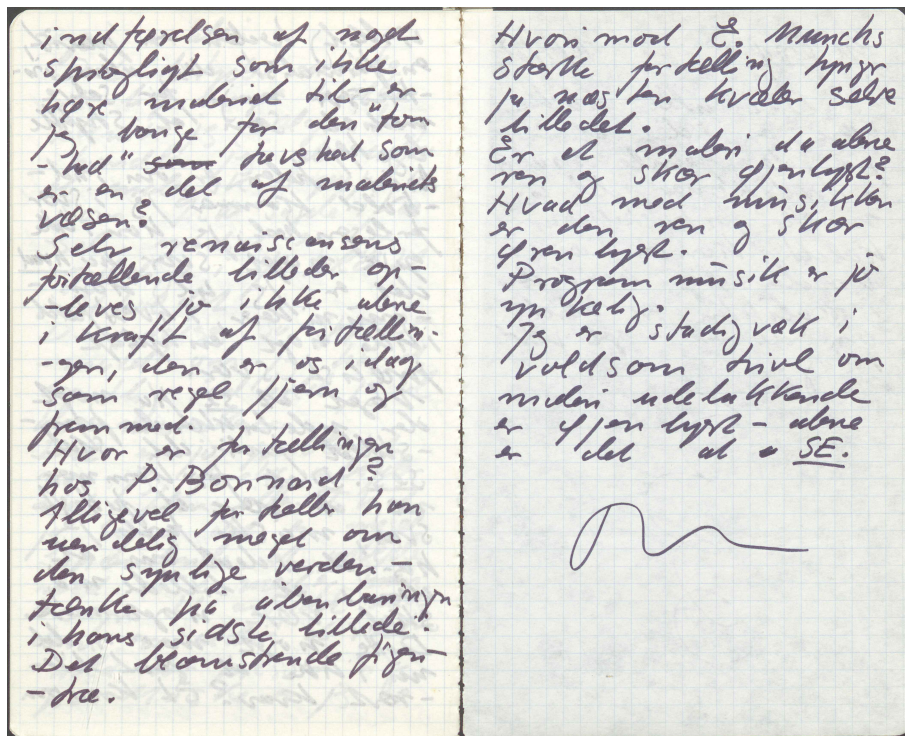 indførelsen af noget
sprogligt som ikke
hører maleriet til – er
jeg bange for den "tom
"hed" som tavshed som
er en del af maleriets
væsen?
Selv renaissancens
fortællende billeder op-
-leves jo ikke alene
i kraft af fortællin-
-gen, den er os idag
som regel fjern og
fremmed.
Hvor er fortællingen
hos P. Bonnard?
Alligevel fortæller han
uendelig meget om
den synlige verden –
tænk på åbenbaringen
i hans sidste billede:
Det blomstrende figen-
-træ.
Hvorimod E. Munchs
stærke fortælling tynger
ja næsten kvæler selve
billedet.
Er et maleri da alene
ren og skær øjenlyst?
Hvad med musikken
er den ren og skær
ørenlyst.
Programmusik er jo
ynkelig.
Jeg er stadigvæk i
voldsom tvivl om
maleri udelukkende
er øjenlyst – alene
er det at SE.